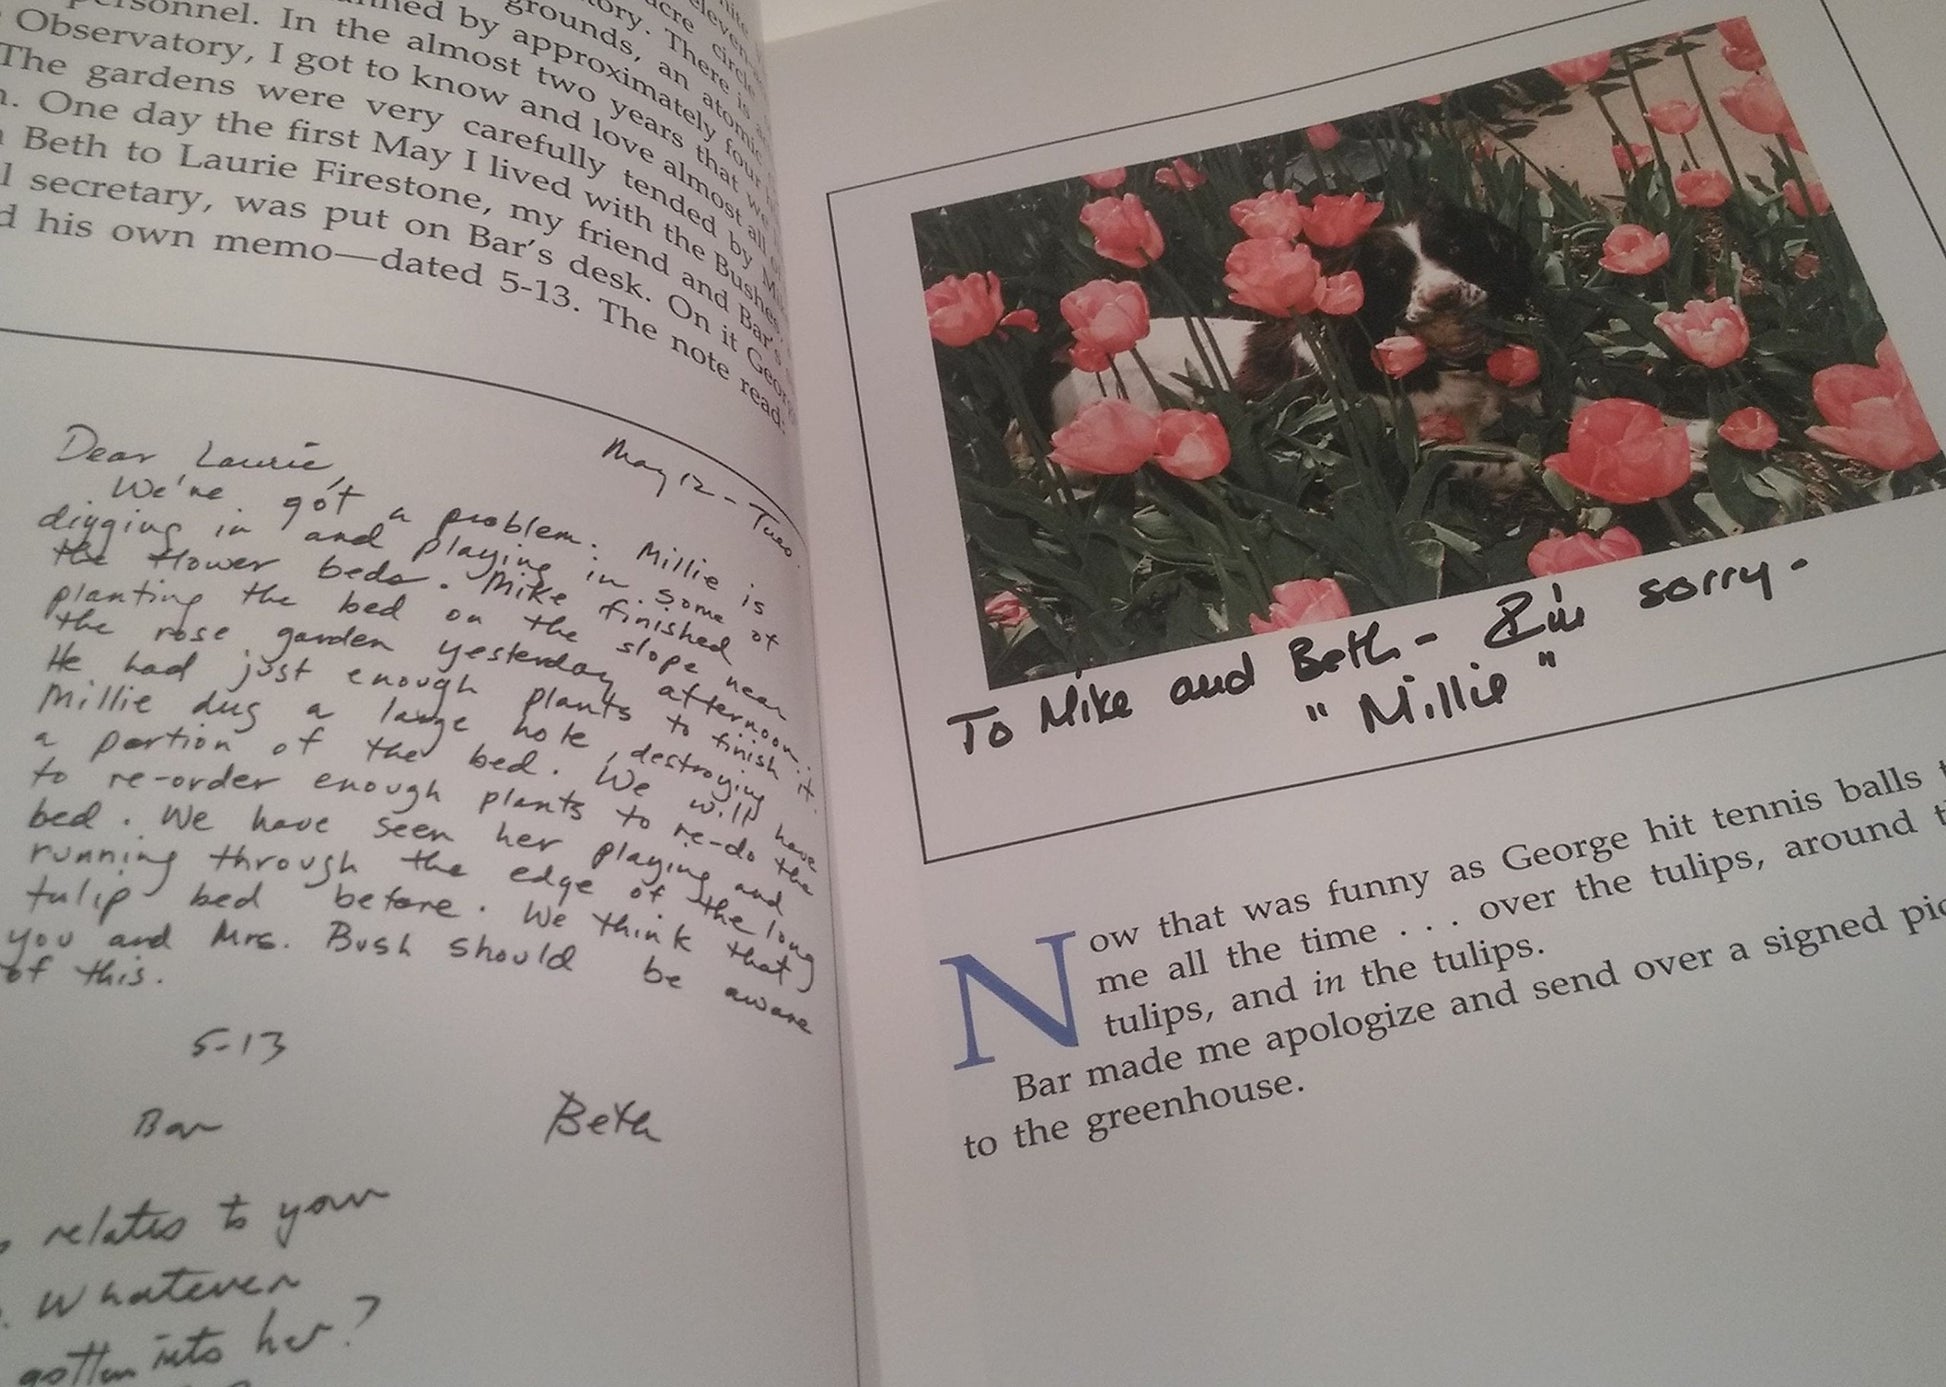 nite
eleven-
acre circle
tory. There is a
grounds, an atomic
nned by approximately four
personnel. In the almost two years that we
Observatory, I got to know and love almost all of
The gardens were very carefully tended by M
n. One day the first May I lived with the Bushes
Beth to Laurie Firestone, my friend and Bar's
l secretary, was put on Bar's desk. On it Geor
d his own memo—dated 5-13. The note read:
May 12 - Tues.
Dear Laurie,
We've got a problem. Millie is
digging in and playing in some of
the flower beds. Mike finished
planting the bed on the slope near
the rose garden yesterday afternoon.
He had just enough plants to finish it.
Millie dug a large hole, destroying
a portion of the bed. We will have
to re-order enough plants to re-do the
bed. We have seen her playing and
running through the edge of the long
tulip bed before. We think that
you and Mrs. Bush should be aware
of this.
Beth
5-13
Bar
relates to your
Whatever
gotten into her?
To Mike and Beth - I'm sorry -
"Millie"
Now that was funny as George hit tennis balls t
me all the time . . . over the tulips, around t
tulips, and in the tulips.
Bar made me apologize and send over a signed pic
to the greenhouse.